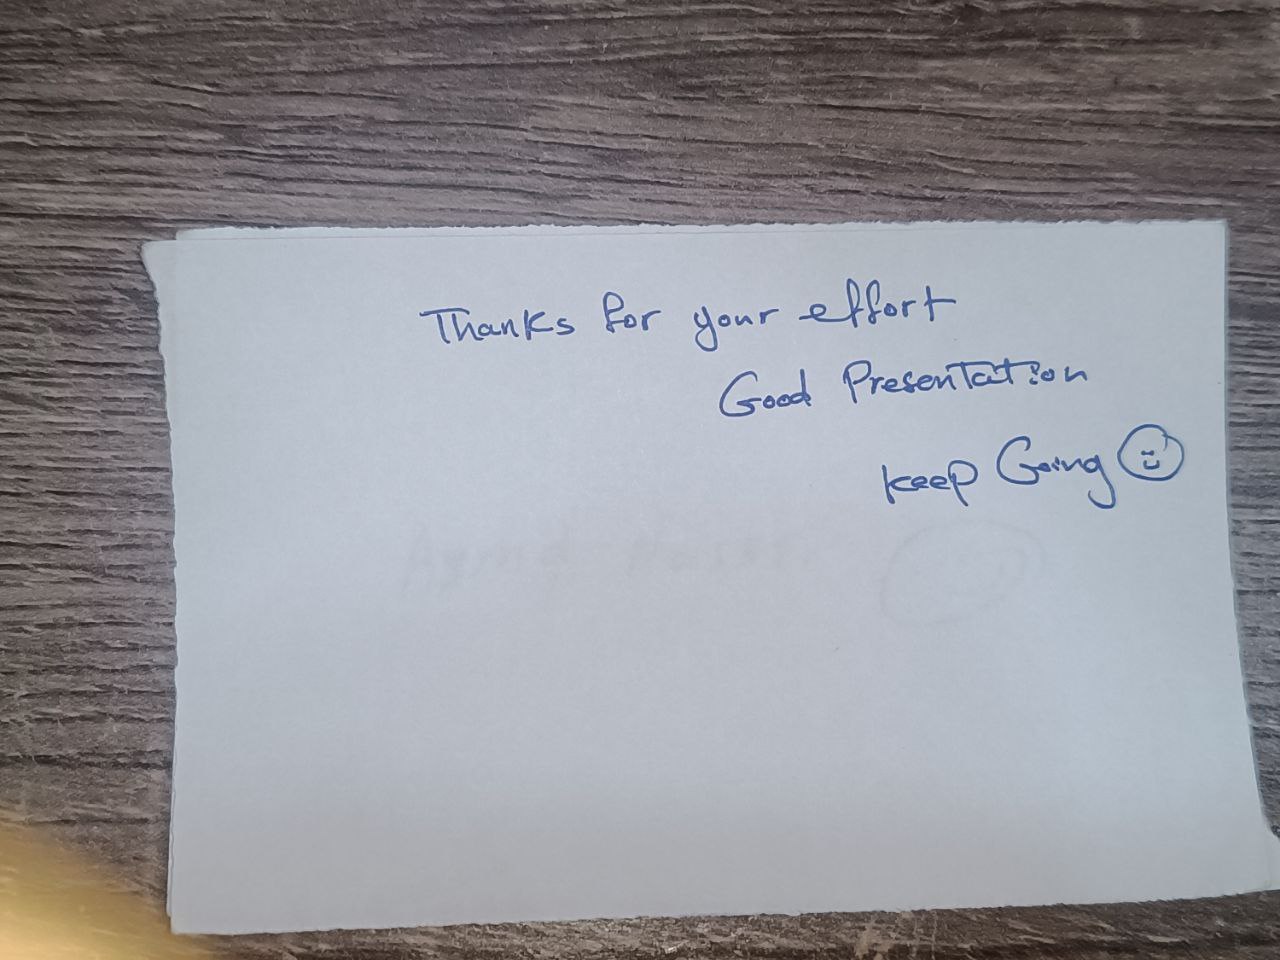 Thanks for your effort
Good Presentation
keep Going